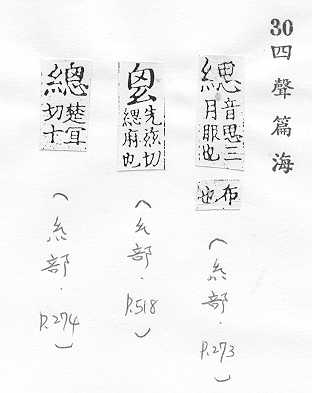 30四聲篇海
緦
音思三
月服也
布
也
（糸部．P.273）
先茲切
緦麻也
（幺部．P.518）
總
切十
（糸部．P.274）